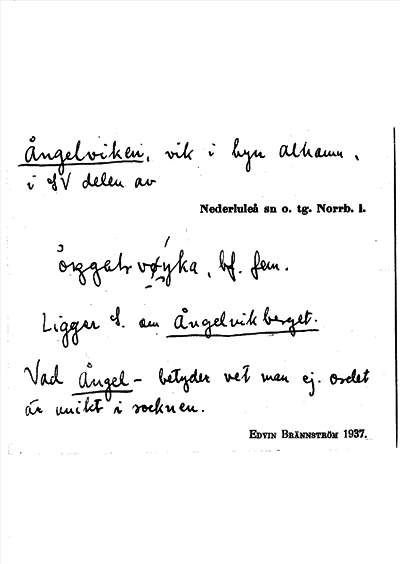 Ångelviken, vik i byn Alhamn,
i SV delen av
Nederluleå sn o. tg. Norrb. l.
bf. fem.
Ligger S. om Ångelvikberget.
Vad Ångel- betyder vet man ej. Ordet
är unikt i socknen.
EDVIN BRÄNNSTRÖM 1937.